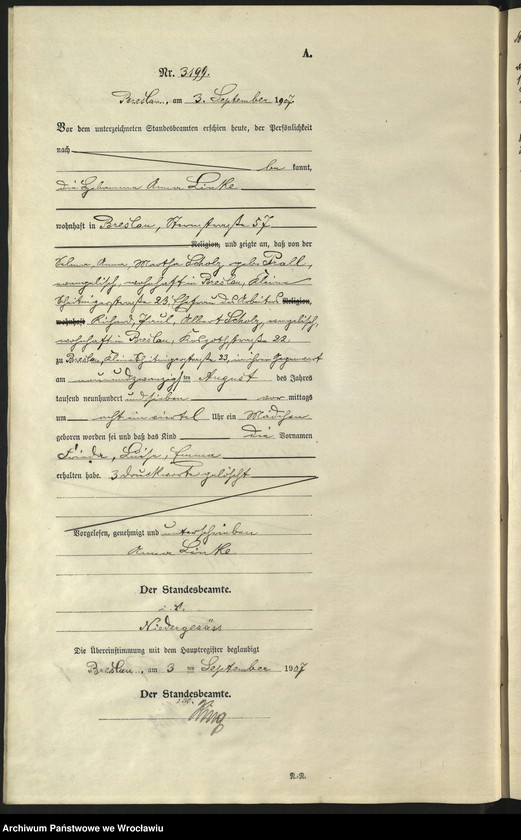 A.
Nr. 3199.
Breslau, am 3. September 1907
Vor dem unterzeichneten Standesbeamten erschien heute, der Persönlichkeit
nach
be kannt,
die Hebamme Anna Linke
wohnhaft in Breslau, Sternstraße 57
Religion, und zeigte an, daß von der
Selma, Anna, Martha Scholz, geb.
evangelisch, wohnhaft in Breslau, Kleine
23, Ehefrau des Religion,
wohnhaft Richard, Paul, Albert Scholz, evangelisch,
wohnhaft in Breslau, 22
zu Breslau, Klein 23, in ihrer Gegenwart
am neunundzwanzigsten August des Jahres
tausend neunhundert und sieben vor mittags
um acht ein viertel Uhr ein Mädchen
geboren worden sei und daß das Kind die Vornamen
Frieda, Luise, Emma
erhalten habe. 3 Druckworte gelöscht
Vorgelesen, genehmigt und unterschrieben
Anna Linke
Der Standesbeamte.
i. V.
Niedergesäss
Die Übereinstimmung mit dem Hauptregister beglaubigt
Breslau, am 3 ten September 1907
Der Standesbeamte.
Archiwum Państwowe we Wrocławiu